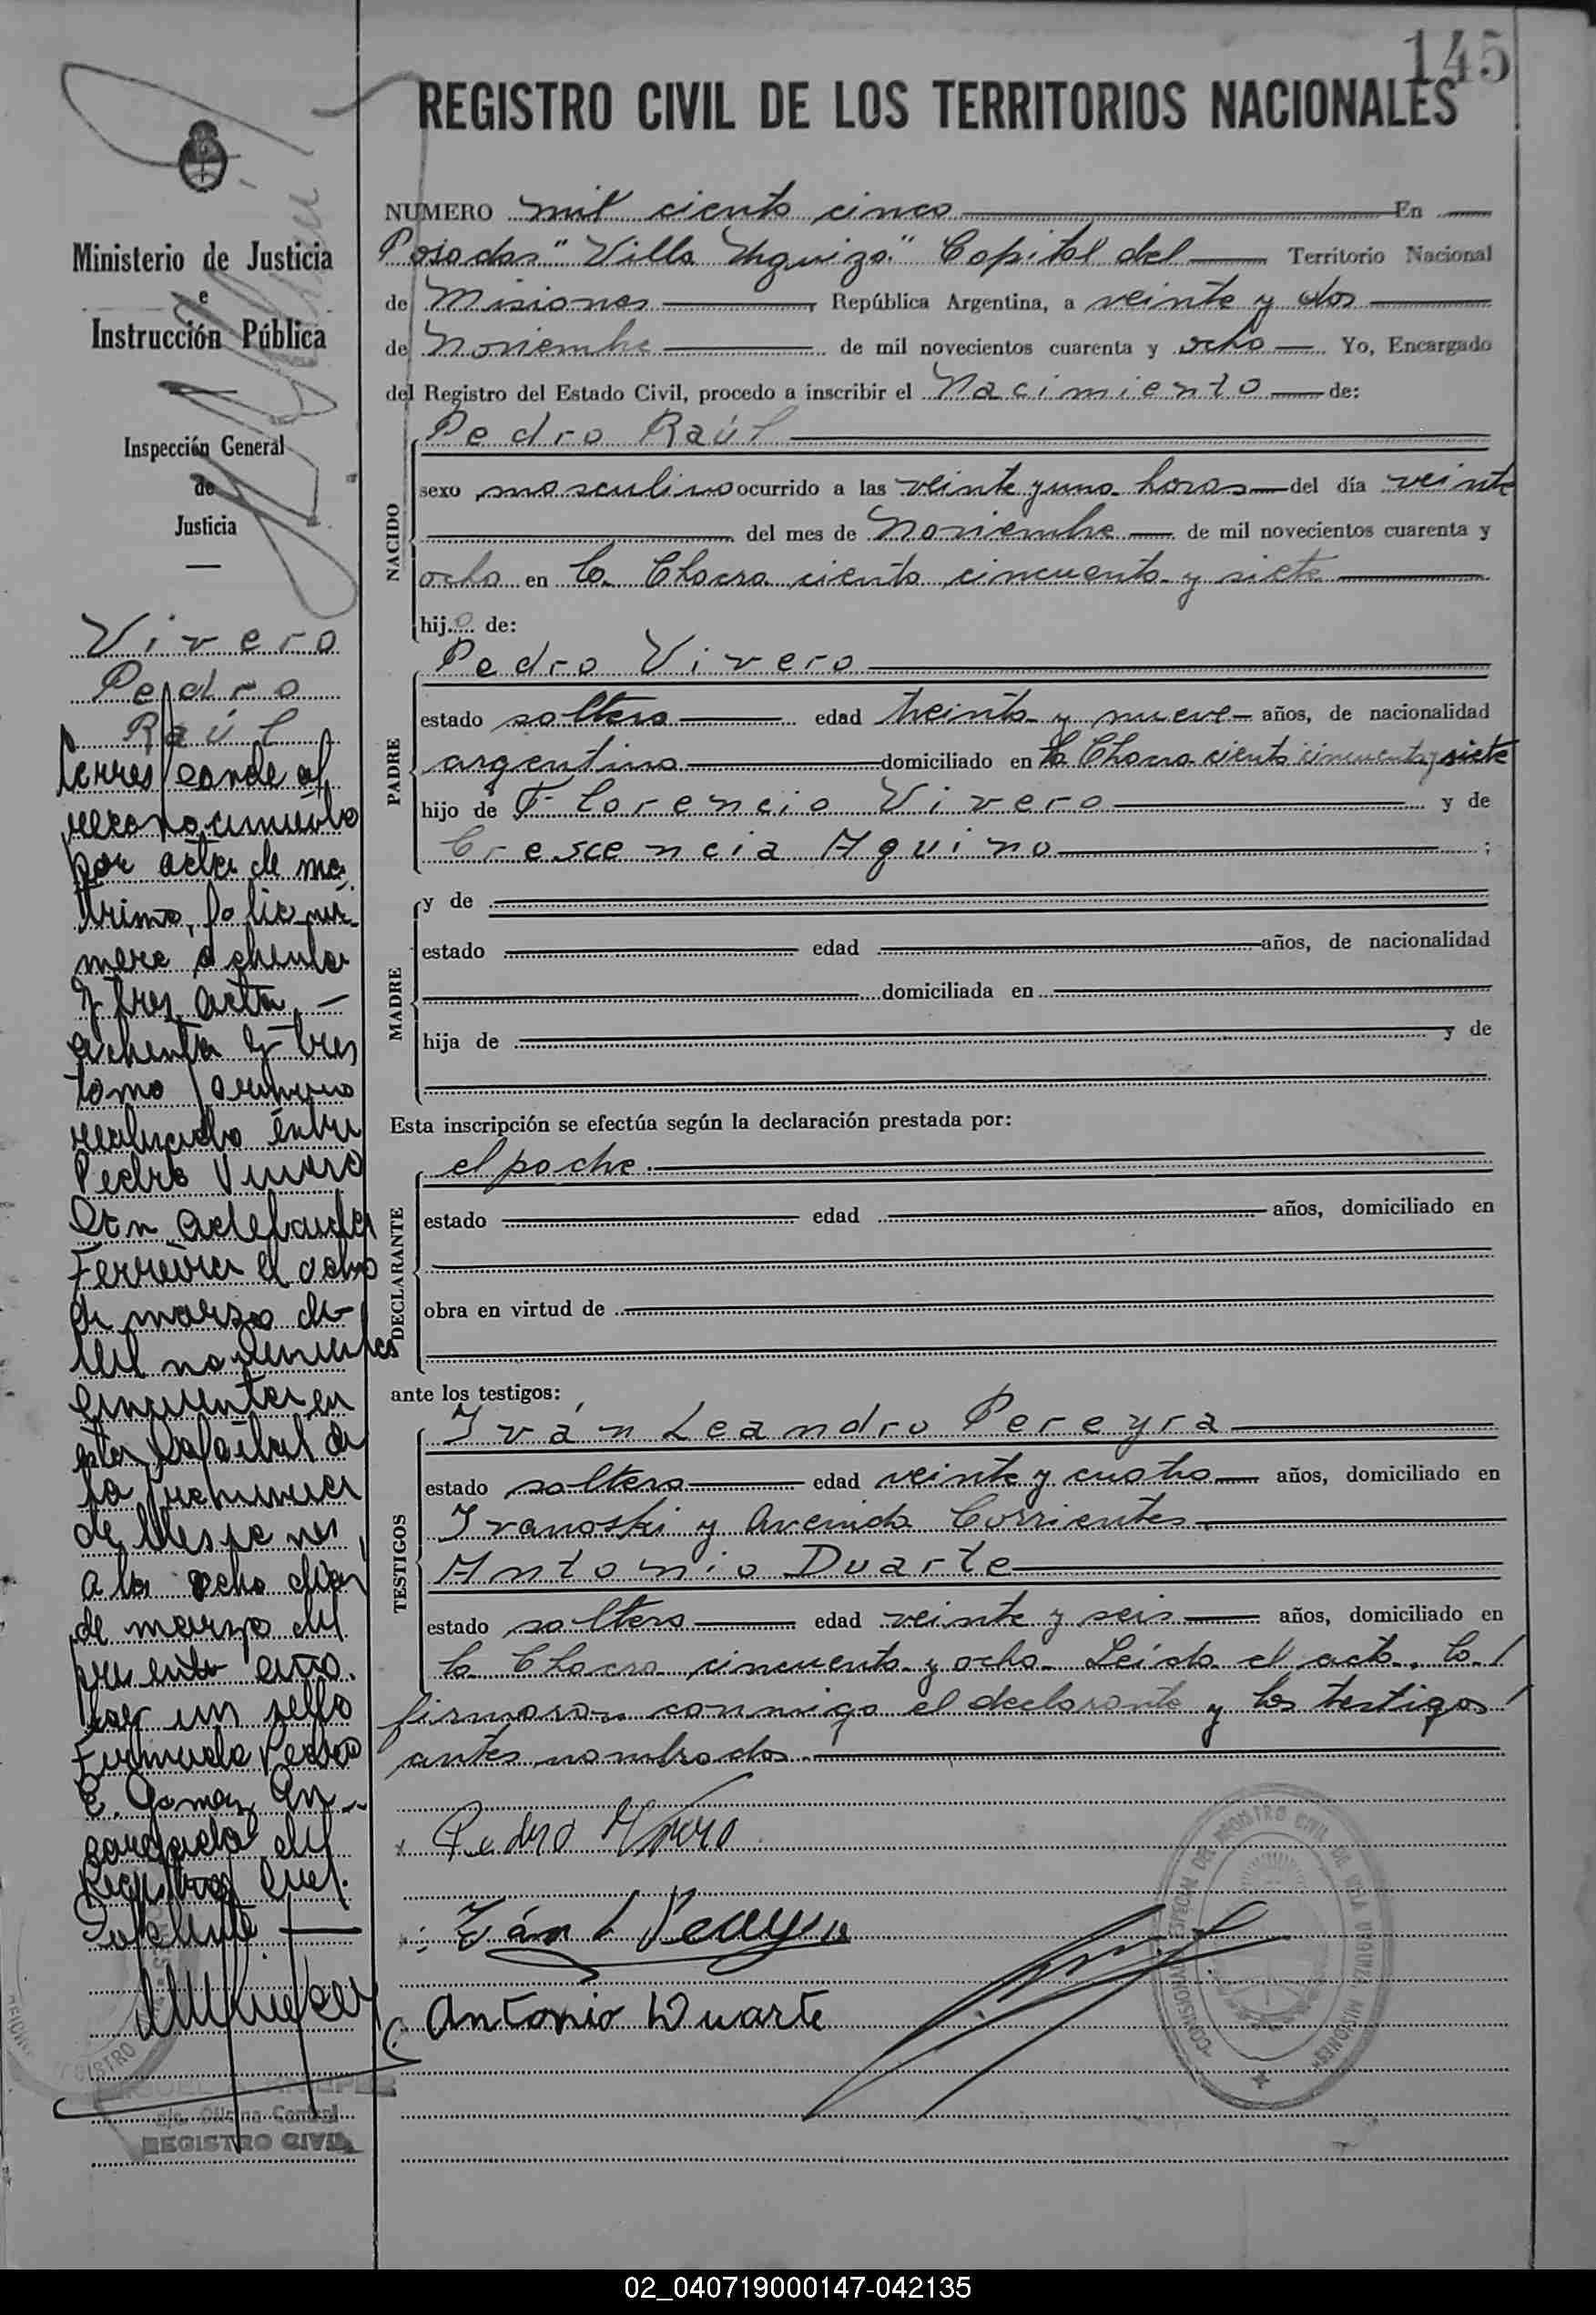 145
REGISTRO CIVIL DE LOS TERRITORIOS NACIONALES
Ministerio de Justicia
e
Instrucción Pública
Inspección General
de
Justicia
Vivero
Pedro
Raúl
Corresponde al
reconocimiento
por acta de ma-
trimo, folio nú-
mero ochenta
y tres acta —
ochenta y tres
tomo primero
realizado entre
Pedro Vivero
con Adelaida
Ferreira el ocho
de marzo de
mil novecientos
cincuenta en
esta Capital de
la provincia
de Misiones
a los ocho días
de marzo del
presente año.
hay un sello
Firmado Pedro
E. Gomez En-
cargado del
Registro Civil
REGISTRO CIVIL
NUMERO mil ciento cinco En
Posadas "Villa Urquiza" Capital del Territorio Nacional
de Misiones, República Argentina, a veinte y dos
de Noviembre de mil novecientos cuarenta y ocho Yo, Encargado
del Registro del Estado Civil, procedo a inscribir el Nacimiento de:
NACIDO
Pedro Raúl
sexo masculino ocurrido a las veinte y una horas del día veinte
del mes de Noviembre de mil novecientos cuarenta y
ocho en la Chacra ciento cincuenta y siete
hijo de:
PADRE
Pedro Vivero
estado soltero edad treinta y nueve años, de nacionalidad
argentina domiciliado en la Chacra ciento cincuenta y siete
hijo de Florencio Vivero y de
Crescencia Aquino ;
MADRE
y de
estado edad años, de nacionalidad
domiciliada en
hija de y de
Esta inscripción se efectúa según la declaración prestada por:
DECLARANTE
el padre.
estado edad años, domiciliado en
obra en virtud de
ante los testigos:
TESTIGOS
Iván Leandro Pereyra
estado soltero edad veinte y cuatro años, domiciliado en
Ivanoski y Avenida Corrientes.
Antonio Duarte
estado soltero edad veinte y seis años, domiciliado en
la Chacra cincuenta y ocho. Leída el acta, la
firmaron conmigo el declarante y los testigos
antes nombrados.
Pedro Vivero
Iván L Pereyra
Antonio Duarte
02_040719000147-042135